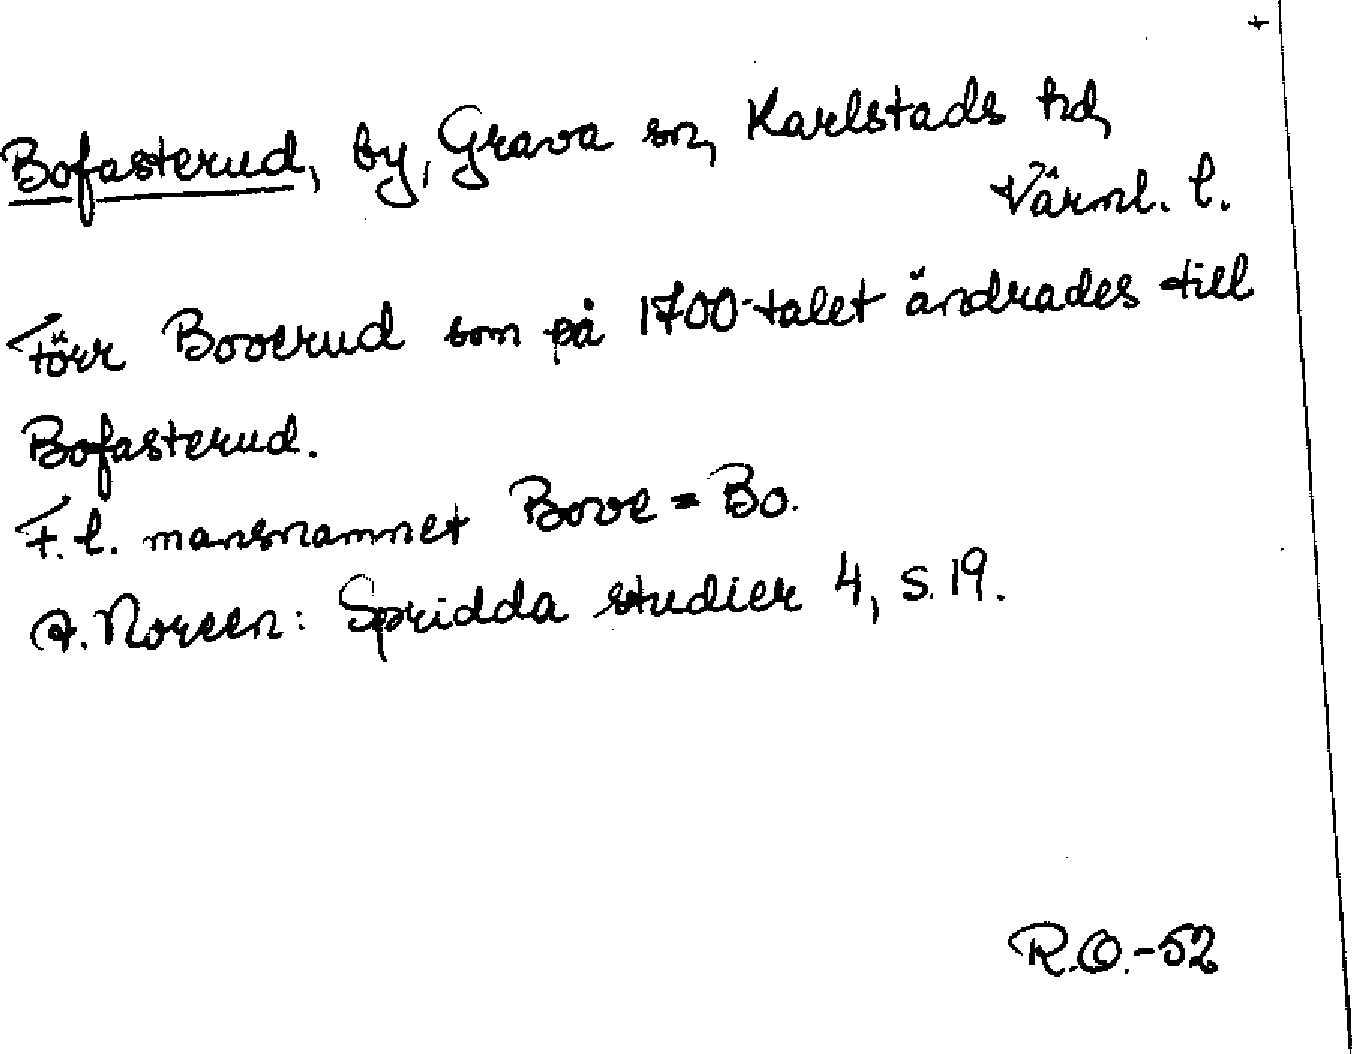 Bofasterud, by, Grava sn, Karlstads hd,
Värml. l.
Förr Booerud som på 1700-talet ändrades till
Bofasterud.
F.l. mansnamnet Bove = Bo.
A. Noreen: Spridda studier 4, s. 19.
R.O.-52